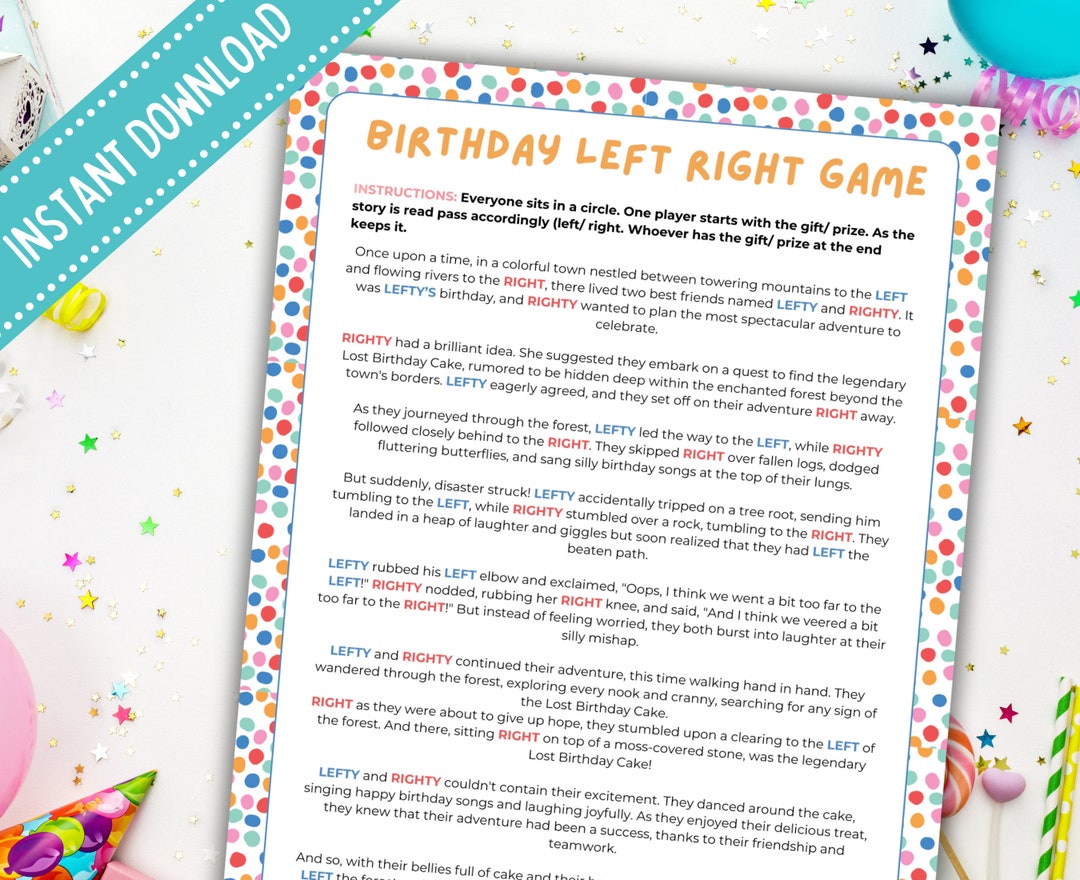 INSTANT DOWNLOAD
BIRTHDAY LEFT RIGHT GAME
INSTRUCTIONS: Everyone sits in a circle. One player starts with the gift/ prize. As the
story is read pass accordingly (left/ right. Whoever has the gift/ prize at the end
keeps it.
Once upon a time, in a colorful town nestled between towering mountains to the LEFT
and flowing rivers to the RIGHT, there lived two best friends named LEFTY and RIGHTY. It
was LEFTY'S birthday, and RIGHTY wanted to plan the most spectacular adventure to
celebrate.
RIGHTY had a brilliant idea. She suggested they embark on a quest to find the legendary
Lost Birthday Cake, rumored to be hidden deep within the enchanted forest beyond the
town's borders. LEFTY eagerly agreed, and they set off on their adventure RIGHT away.
As they journeyed through the forest, LEFTY led the way to the LEFT, while RIGHTY
followed closely behind to the RIGHT. They skipped RIGHT over fallen logs, dodged
fluttering butterflies, and sang silly birthday songs at the top of their lungs.
But suddenly, disaster struck! LEFTY accidentally tripped on a tree root, sending him
tumbling to the LEFT, while RIGHTY stumbled over a rock, tumbling to the RIGHT. They
landed in a heap of laughter and giggles but soon realized that they had LEFT the
beaten path.
LEFTY rubbed his LEFT elbow and exclaimed, "Oops, I think we went a bit too far to the
LEFT!" RIGHTY nodded, rubbing her RIGHT knee, and said, "And I think we veered a bit
too far to the RIGHT!" But instead of feeling worried, they both burst into laughter at their
silly mishap.
LEFTY and RIGHTY continued their adventure, this time walking hand in hand. They
wandered through the forest, exploring every nook and cranny, searching for any sign of
the Lost Birthday Cake.
RIGHT as they were about to give up hope, they stumbled upon a clearing to the LEFT of
the forest. And there, sitting RIGHT on top of a moss-covered stone, was the legendary
Lost Birthday Cake!
LEFTY and RIGHTY couldn't contain their excitement. They danced around the cake,
singing happy birthday songs and laughing joyfully. As they enjoyed their delicious treat,
they knew that their adventure had been a success, thanks to their friendship and
teamwork.
And so, with their bellies full of cake and their
LEFT the